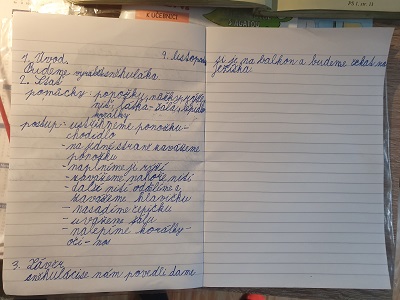 K UČEBNICI
9. listopadu
1. Úvod
Budeme vyrábět sněhuláka
2. Stať
pomůcky: ponožku, nůžky, rýži
nití, šála, lepidlo
korálky
postup: - ustřihneme ponožku -
chodidlo
- na jedné straně zavážeme
ponožku
- naplníme ji rýží
- zavážeme nahoře nití
- další nití oddělíme a
zavážeme hlavičku
- nasadíme čepičku
- uvážeme šálu
- nalepíme korálky -
oči - nos
3. Závěr
sněhuláci se nám povedli dáme
si ji na balkon a budeme čekat na
Ježíška